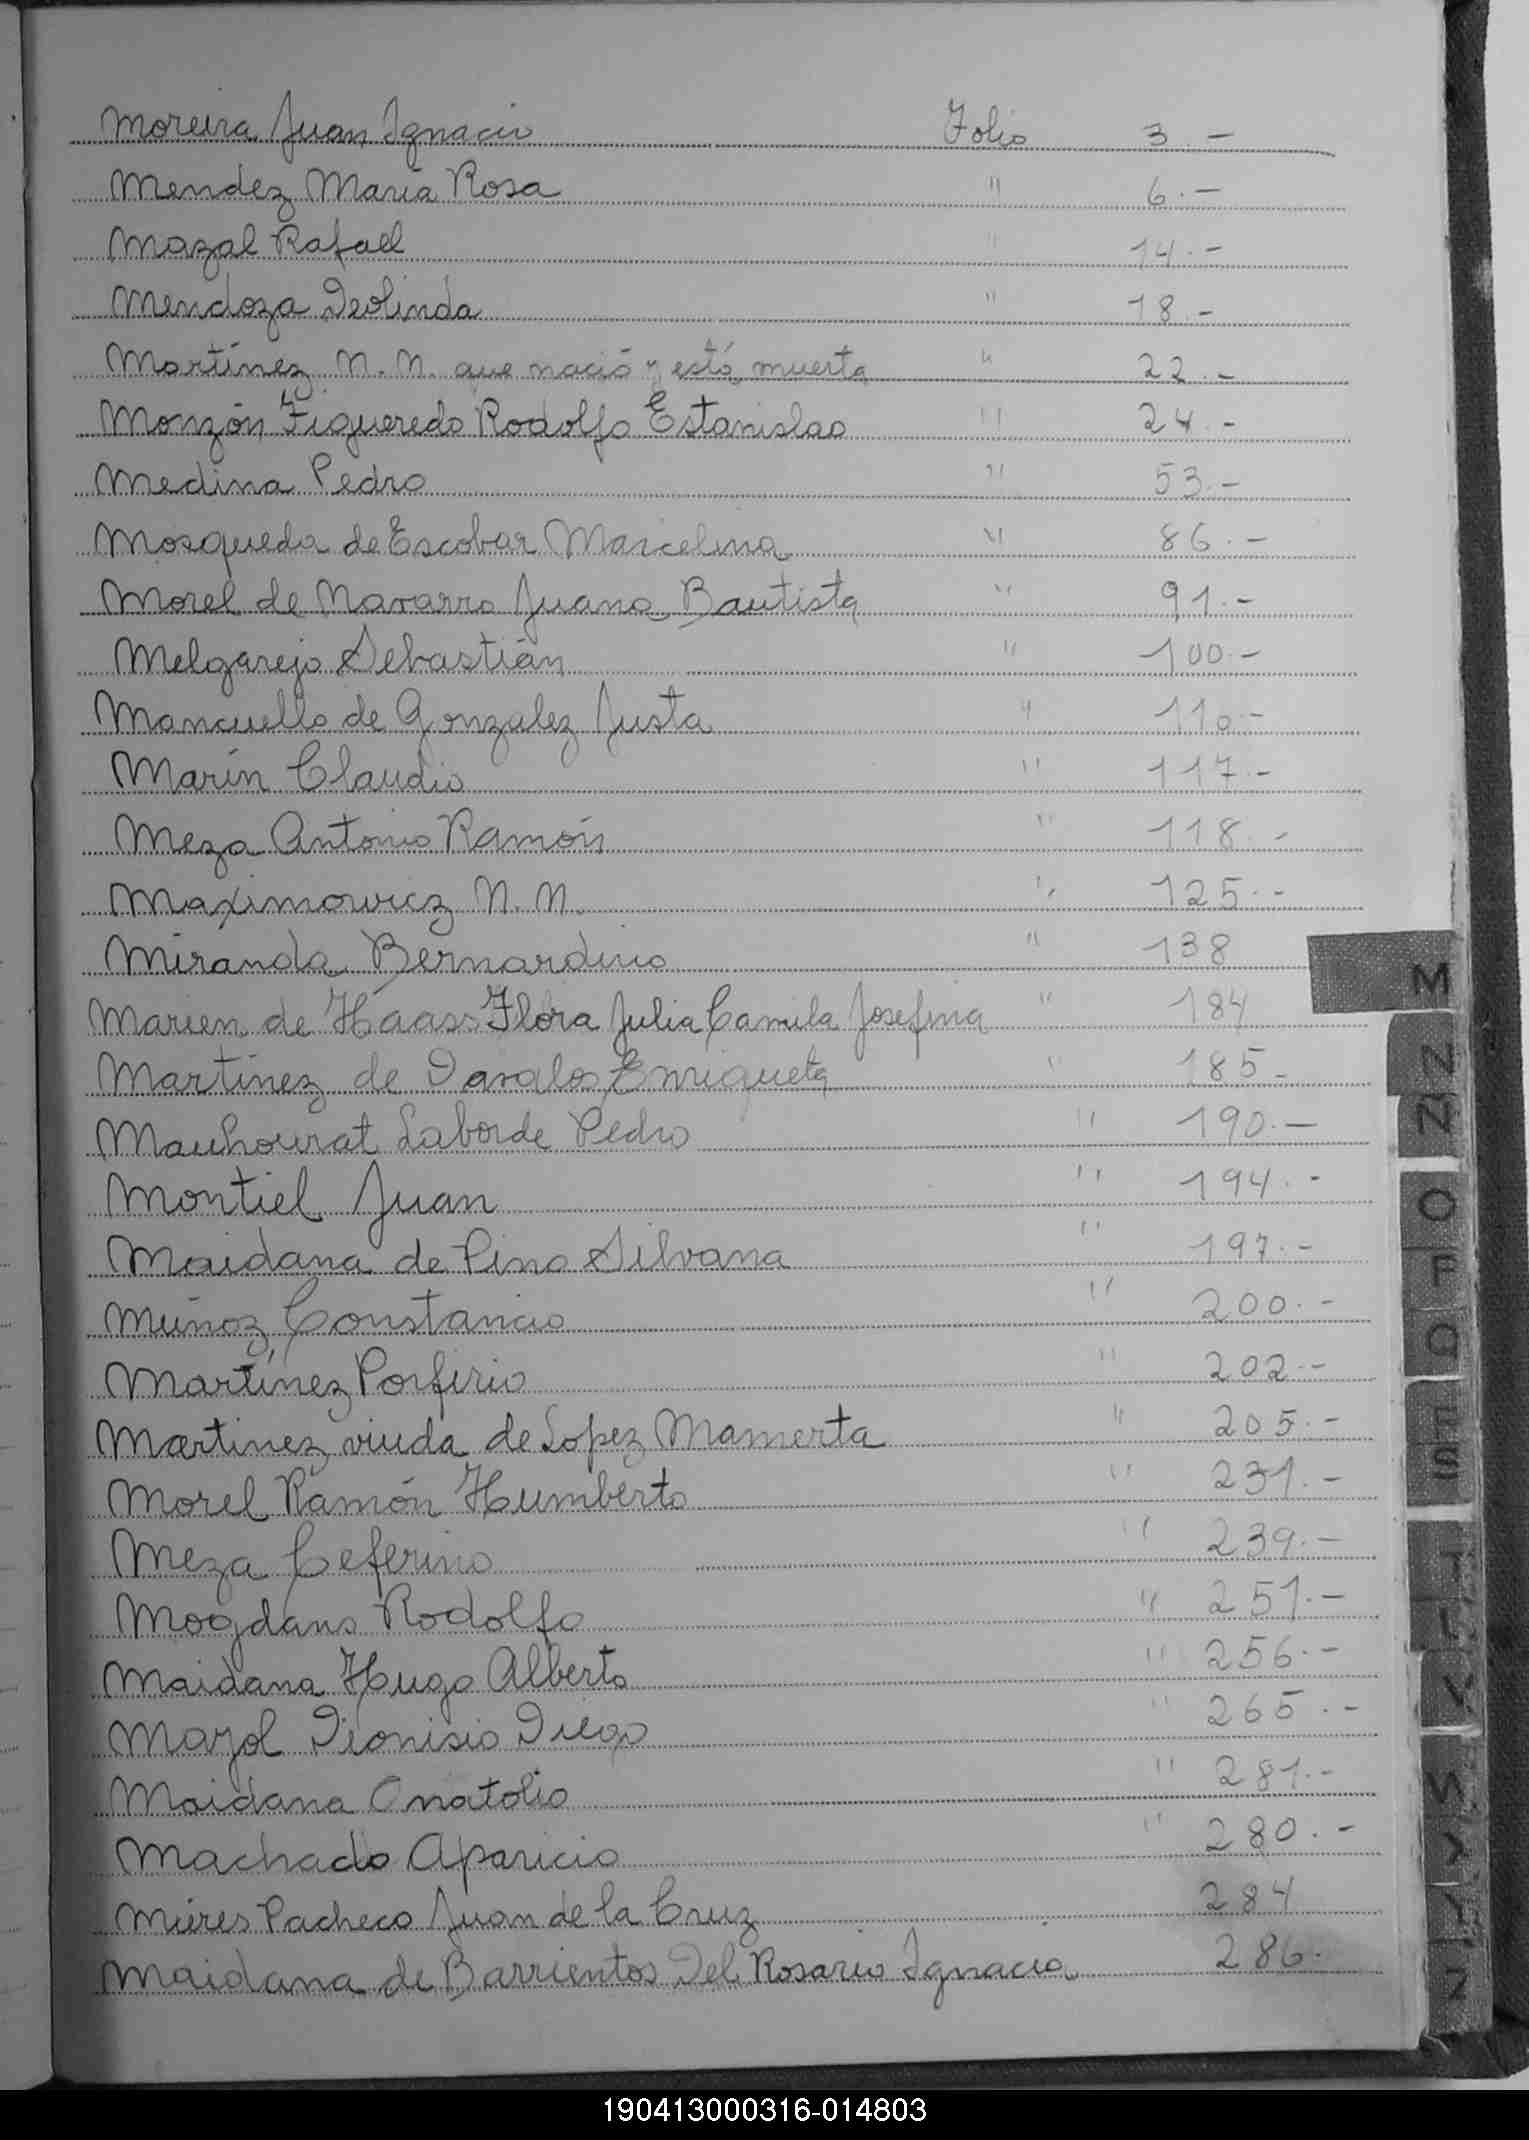 Moreira Juan Ignacio Folio 3.-
Mendez Maria Rosa " 6.-
Mazal Rafael " 14.-
Mendoza Deolinda " 18.-
Martínez N. N. que nació y está muerta " 22.-
Monzón Figueredo Rodolfo Estanislao " 24.-
Medina Pedro " 53.-
Mosqueda de Escobar Marcelina " 86.-
Morel de Navarro Juana Bautista " 91.-
Melgarejo Sebastián " 100.-
Mancuello de Gonzalez Justa " 110.-
Marín Claudio " 117.-
Meza Antonio Ramón " 118.-
Maximowicz N. N. " 125.-
Miranda Bernardino " 138
Marien de Haass Flora Julia Camila Josefina " 184
Martínez de Davalos Enriqueta " 185-
Mauhourat Laborde Pedro " 190.-
Montiel Juan " 194.-
Maidana de Pino Silvana " 197.-
Muñoz Constancio " 200.-
Martínez Porfirio " 202.-
Martinez viuda de Lopez Mamerta " 205.-
Morel Ramón Humberto " 231.-
Meza Ceferino " 239.-
Mogdans Rodolfo " 251.-
Maidana Hugo Alberto " 256.-
Mazol Dionisio Diego " 265.-
Maidana Onatolio " 281.-
Machado Aparicio " 280.-
Mieres Pacheco Juan de la Cruz 284
Maidana de Barrientos Del Rosario Ignacia 286.
M
N
Ñ
O
P
Q
R
S
T
U
V
W
X
Y
Z
190413000316-014803